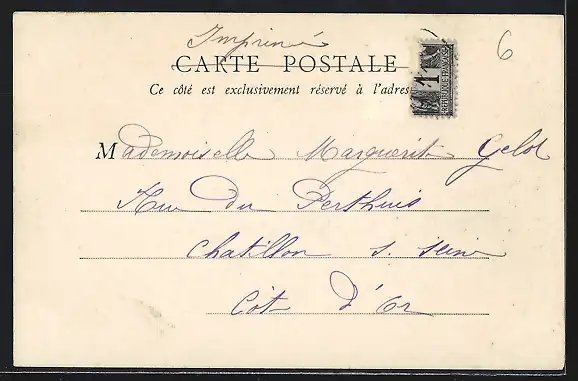 Imprimé
6
CARTE POSTALE
Ce côté est exclusivement réservé à l'adres
1
Mademoiselle Marguerit Gelot
Rue du Perthuis
Chatillon s. Seine
Côt d'Or